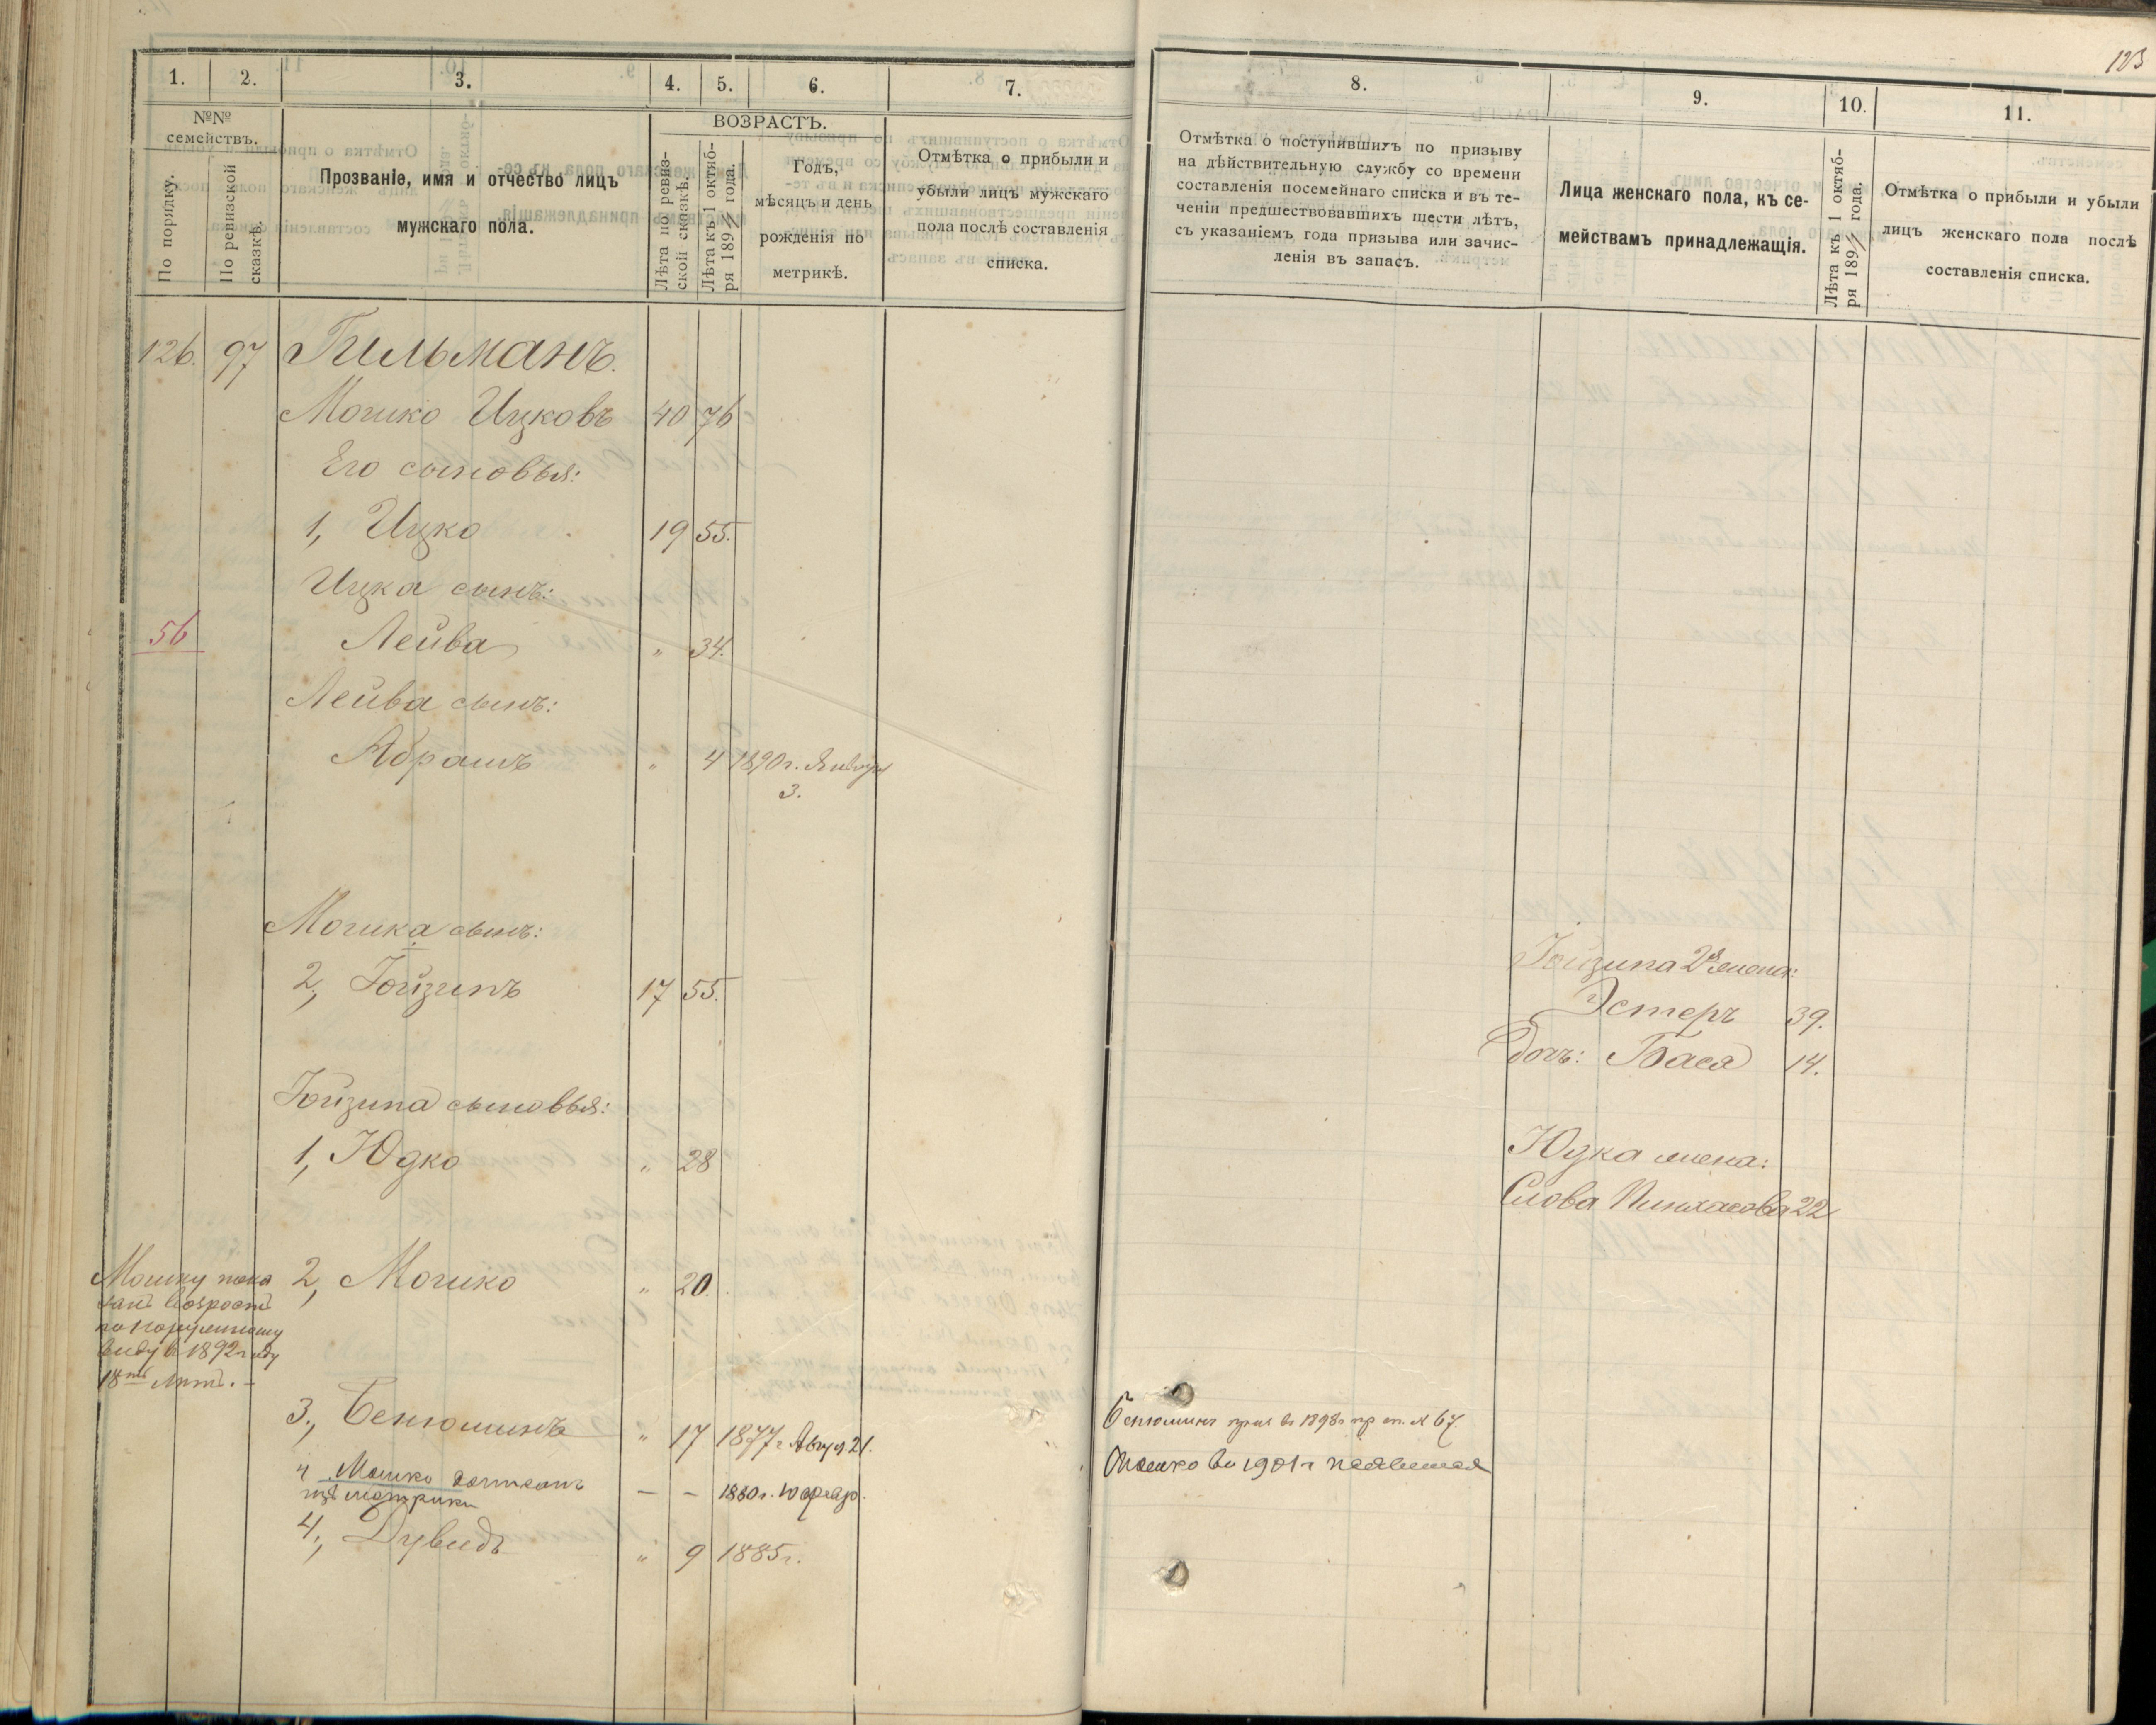 123
1. 2. 3. 4. 5. 6. 7.
№№ семействъ.
По порядку.
По ревизской сказкѣ.
Прозваніе, имя и отчество лицъ
мужскаго пола.
ВОЗРАСТЪ.
Лѣта по ревиз-
ской сказкѣ.
Лѣта къ 1 октяб-
ря 189 года.
Годъ,
мѣсяцъ и день
рожденія по
метрикѣ.
Отмѣтка о прибыли и
убыли лицъ мужскаго
пола послѣ составленія
списка.
126. 97 Гильманъ.
Мошко Ицковъ 40 76
Его сыновья:
1, Ицко 19 55.
Ицка сынъ:
56 Лейва " 34.
Лейва сынъ:
Абрамъ " 4 1890 г. Января
3.
Мошка сынъ:
2, Іойзипъ 17 55.
Іойзипа сыновья:
1, Юдко " 28
2, Мошко " 20.
Мошку пока
занъ возрастъ
по
виду в 1892 г
18 лѣтъ. -
3, Бенюминъ " 17 1877 г Август 21.
4 Мошко
изъ метрики — — 1880 г.
4, Дувидъ " 9 1885 г.
8. 9. 10. 11.
Отмѣтка о поступившихъ по призыву
на дѣйствительную службу со времени
составленія посемейнаго списка и въ те-
ченіи предшествовавшихъ шести лѣтъ,
съ указаніемъ года призыва или зачис-
ленія въ запасъ.
Лица женскаго пола, къ се-
мействамъ принадлежащія.
Лѣта къ 1 октяб-
ря 189 года.
Отмѣтка о прибыли и убыли
лицъ женскаго пола послѣ
составленія списка.
Іойзипа 2я жена:
Эстеръ 39.
Дочь: Бася 14.
Юдка жена:
Слова Пинхасова 22
Бенюминъ въ 1898 г № 67
Мошко въ 1901 г